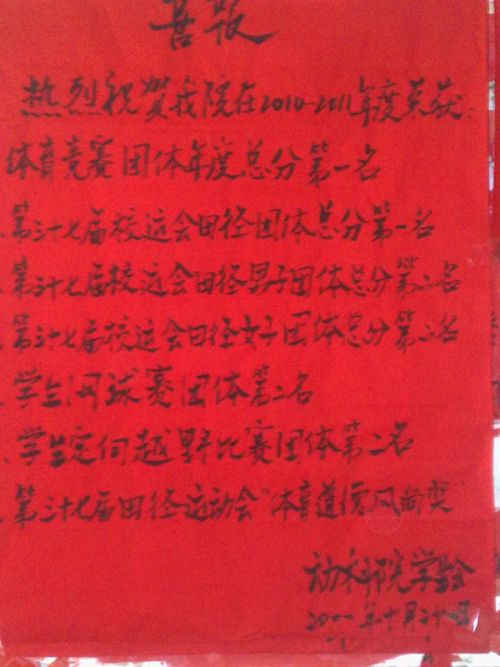 喜报
热烈祝贺我院在2010-2011年度荣获:
体育竞赛团体年度总分第一名
、第三十七届校运会田径团体总分第一名
、第三十七届校运会田径男子团体总分第二名
、第三十七届校运会田径女子团体总分第二名
、学生网球赛团体第二名
、学生定向越野比赛团体第二名
、第三十七届田径运动会“体育道德风尚奖”
动科院学
年十月二十